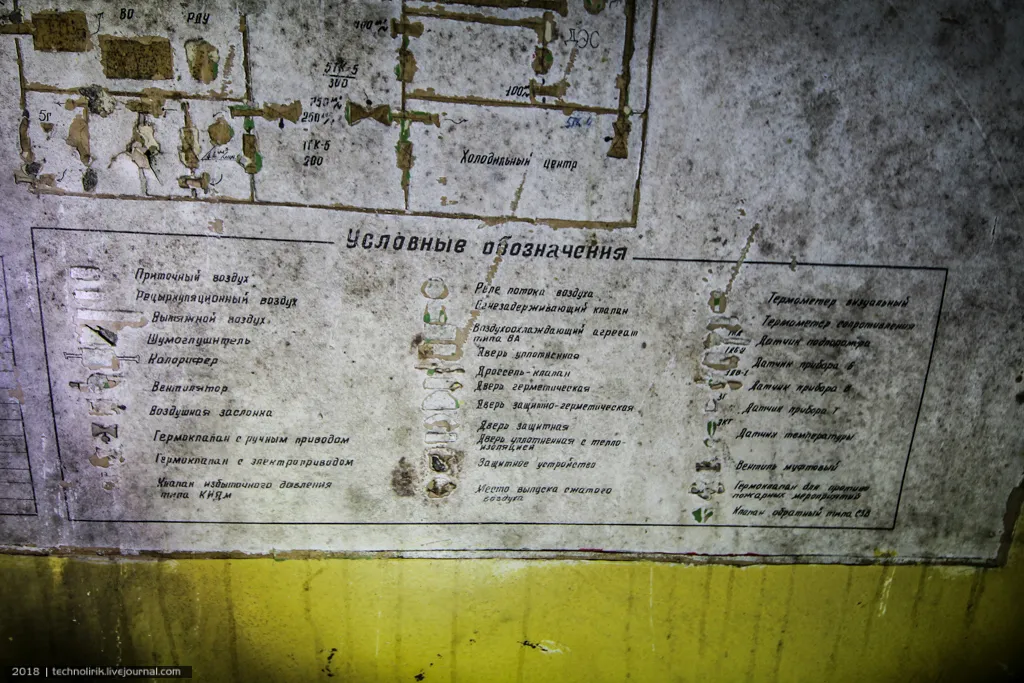 ВО
РДУ
400
ДЭС
5ТК-5
300
100
5г
250
1ГК-5
200
Холодильный центр
Условные обозначения
Приточный воздух
Рециркуляционный воздух
Вытяжной воздух
Шумоглушитель
Калорифер
Вентилятор
Воздушная заслонка
Гермоклапан с ручным приводом
Гермоклапан с электроприводом
Клапан избыточного давления
типа КИДм
Реле потока воздуха
Огнезадерживающий клапан
Воздухоохлаждающий агрегат
типа ВА
Дверь уплотненная
Дроссель-клапан
Дверь герметическая
Дверь защитно-герметическая
Дверь защитная
Дверь уплотненная с тепло-
изоляцией
Защитное устройство
Место выпуска сжатого
воздуха
Термометр визуальный
Термометр сопротивления
Датчик подпоромера
Датчик прибора
Датчик прибора
Датчик прибора
Датчик температуры
Вентиль муфтовый
Гермоклапан для противо
пожарных мероприятий
Клапан обратный типа
2018 | technolirik.livejournal.com